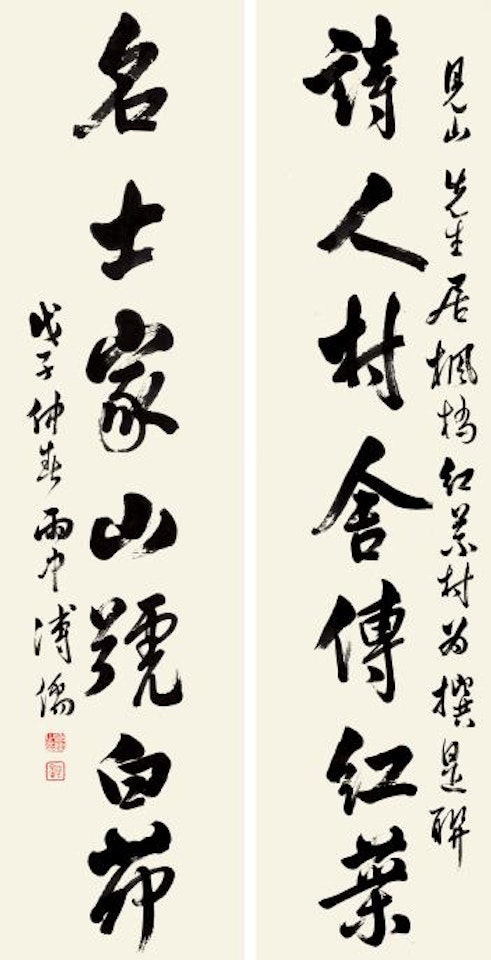 見山先生居楓橋紅葉村为撰是聯
詩人村舍傳紅葉
名士家山號白茆
戊子仲春雨中溥儒